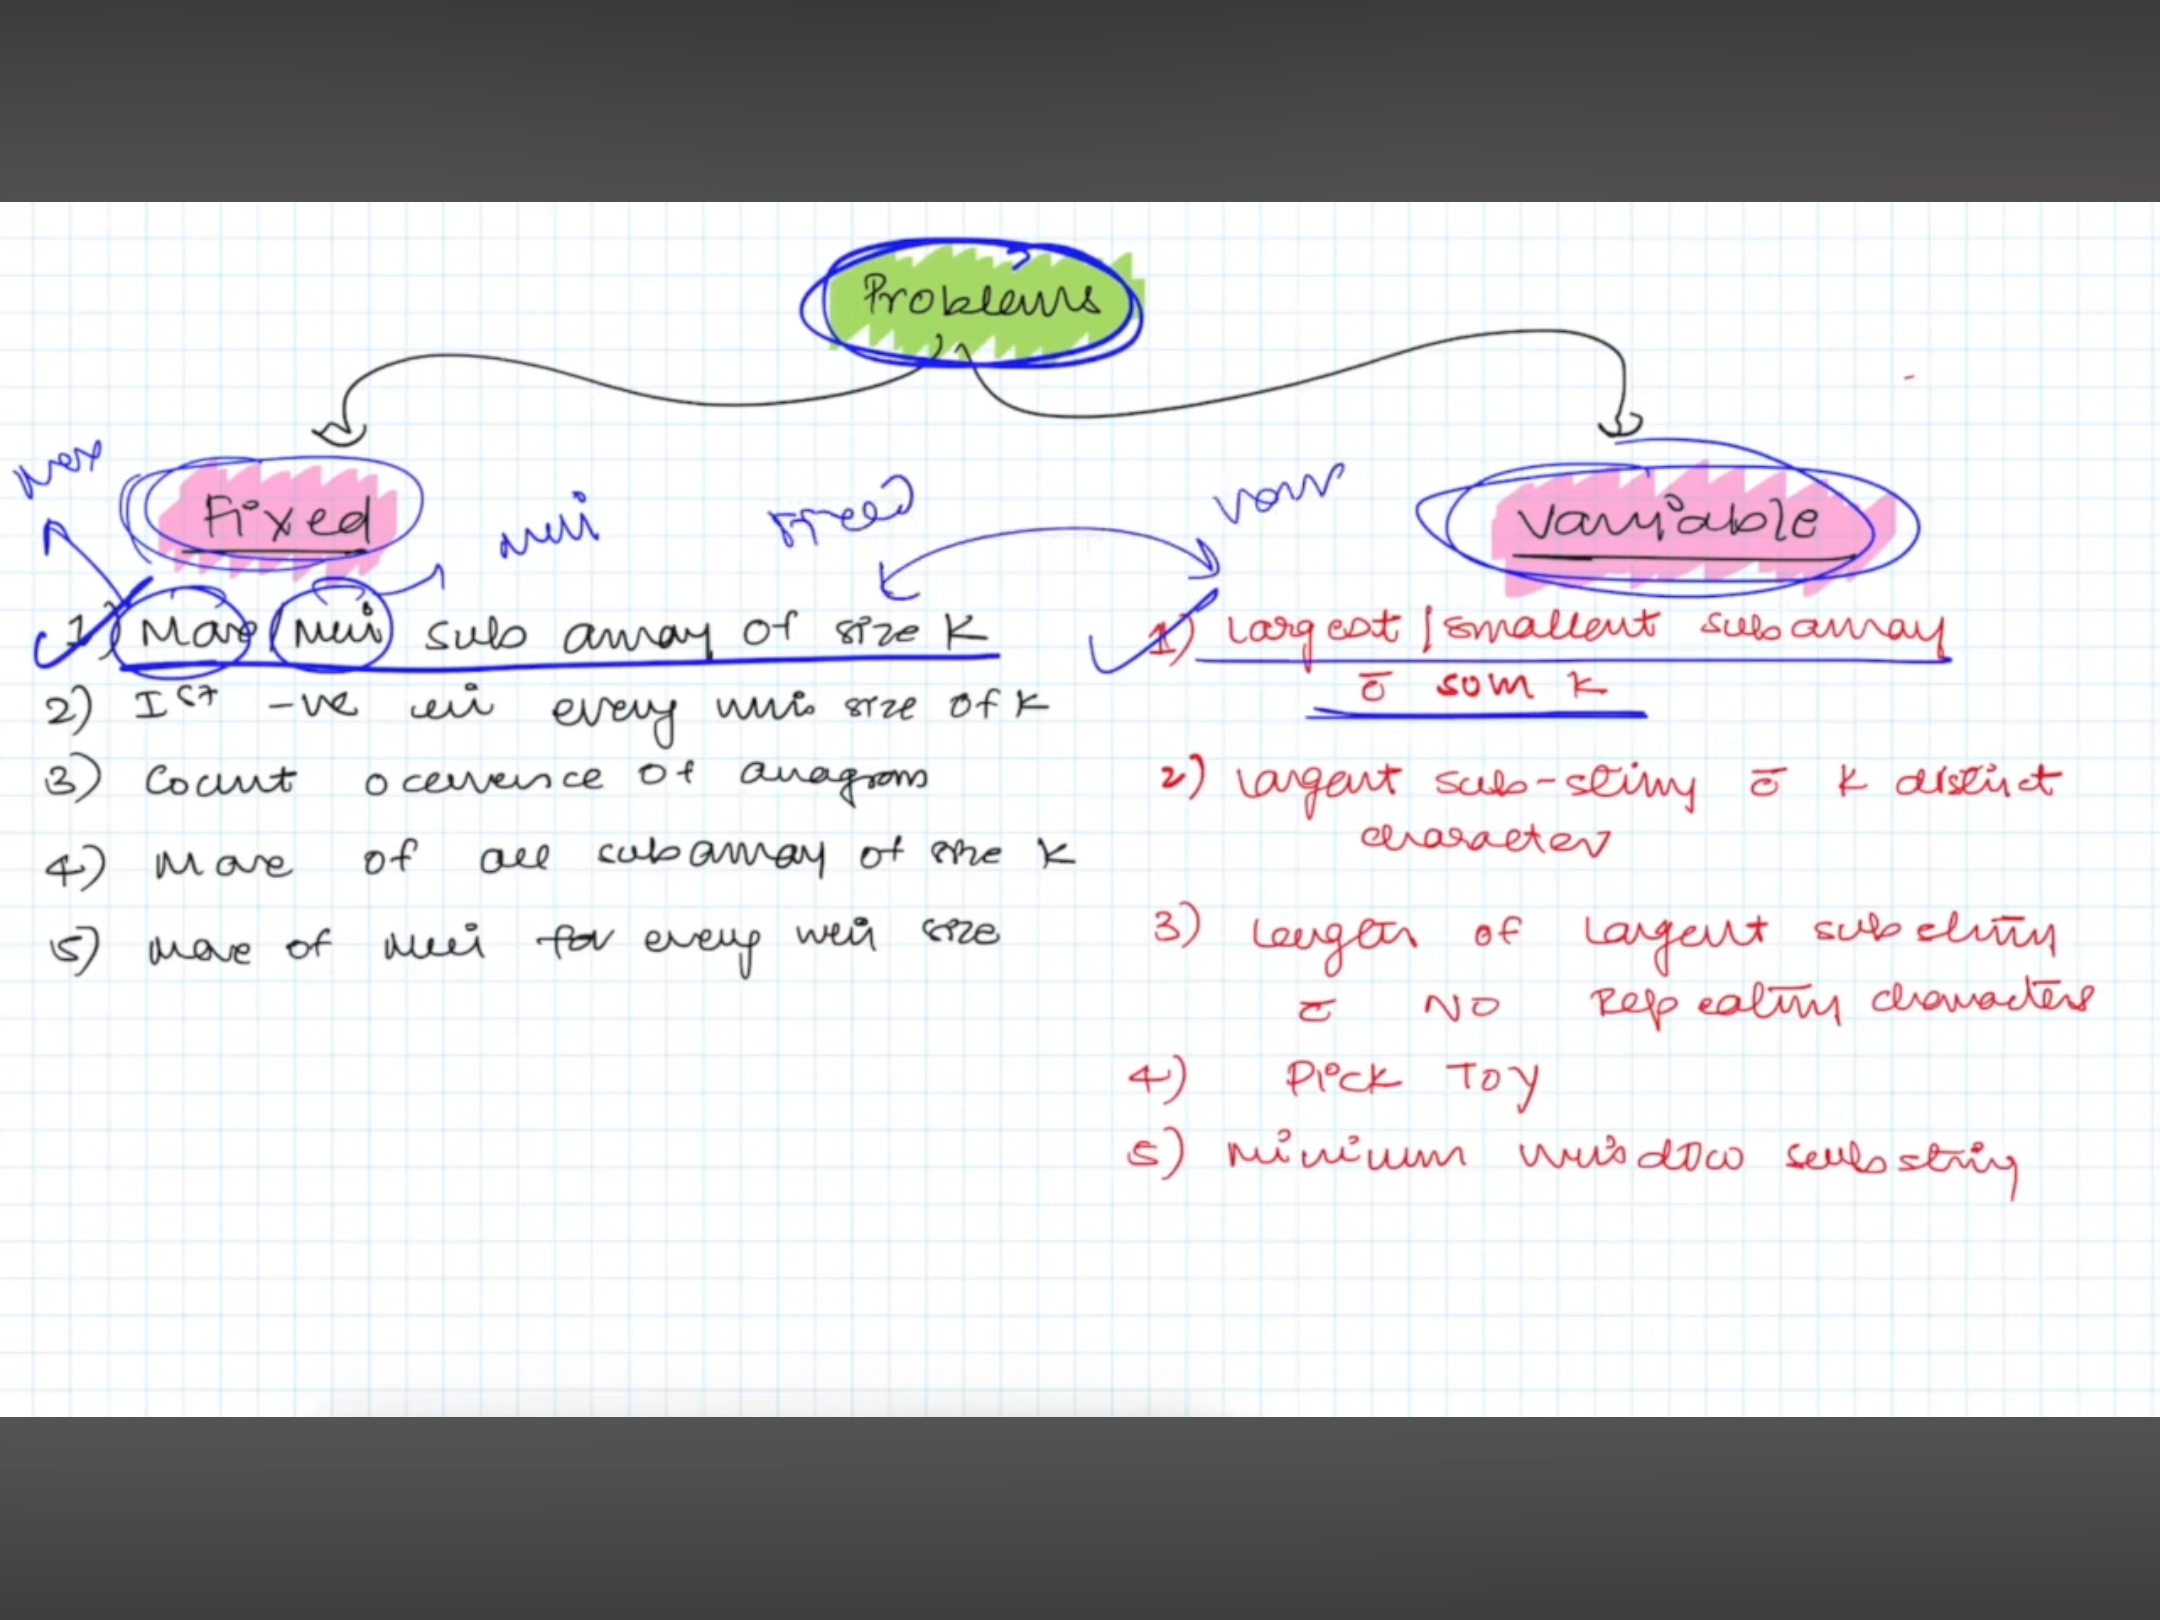 Problems
Fixed
Variable
Max
Min
Fixed
Var
1) Max/Min sub array of size K
2) 1st -ve in every win size of K
3) Count occurence of anagram
4) Max of all subarray of size K
5) Max of Min for every win size
1) Largest/smallest subarray
c̄ sum K
2) Largest sub-string c̄ K distinct
character
3) Length of Largest substring
c̄ NO Repeating characters
4) Pick Toy
5) Minimum Window substring